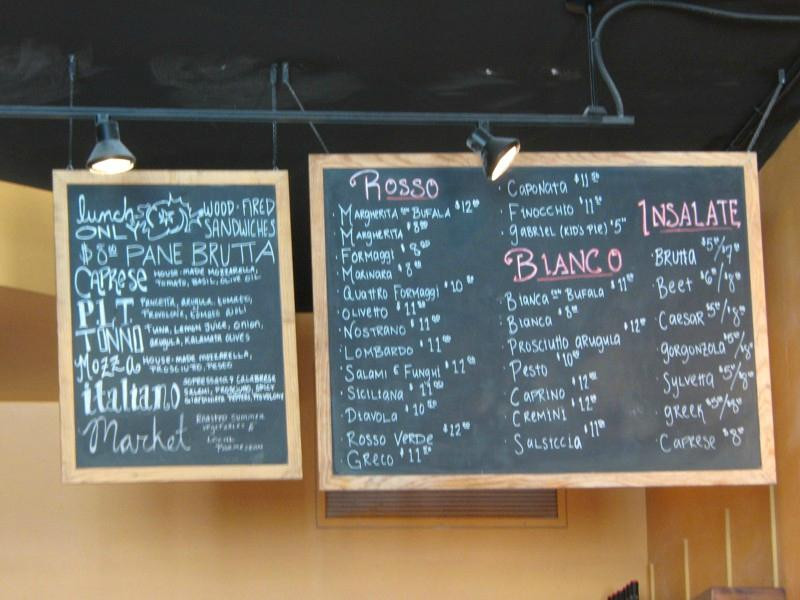 lunch ONLY
WOOD-FIRED SANDWICHES
$8.00 PANE BRUTTA
CAPRESE HOUSE-MADE MOZZARELLA, TOMATO, BASIL, OLIVE OIL
P.L.T. PANCETTA, ARUGULA, TOMATO, PROVOLONE,
TONNO TUNA, LEMON JUICE, ONION, ARUGULA, KALAMATA OLIVES
MOZZA HOUSE-MADE MOZZARELLA, PROSCIUTTO, PESTO
italiano SOPRESSATA & CALABRESE SALAMI, PROSCIUTTO, SPICY PEPPERS, PROVOLONE
Market ROASTED SUMMER VEGETABLES & LOCAL
ROSSO
MARGHERITA CON BUFALA $12.00
MARGHERITA $8.00
FORMAGGI $8.00
MARINARA $8.00
QUATTRO FORMAGGI $10.00
OLIVETTO $11.00
NOSTRANO $11.00
LOMBARDO $11.00
SALAMI E FUNGHI $12.00
SICILIANA $11.00
DIAVOLA $10.00
ROSSO VERDE $12.00
GRECO $11.00
CAPONATA $11.00
FINOCCHIO $11.00
GABRIEL (KID'S PIE) $5.00
BIANCO
BIANCA CON BUFALA $11.00
BIANCA $8.00
PROSCIUTTO ARUGULA $12.00
PESTO $10.00
CAPRINO $12.00
CREMINI $12.00
SALSICCIA $11.00
INSALATE
BRUTTA $5.00/$7.00
Beet $6.00/$8.00
CAESAR $5.00/$8.00
gorgonzola $5.00/$8.00
Sylvetta $5.00/$8.00
greek $5.00/$8.00
CAPRESE $8.00